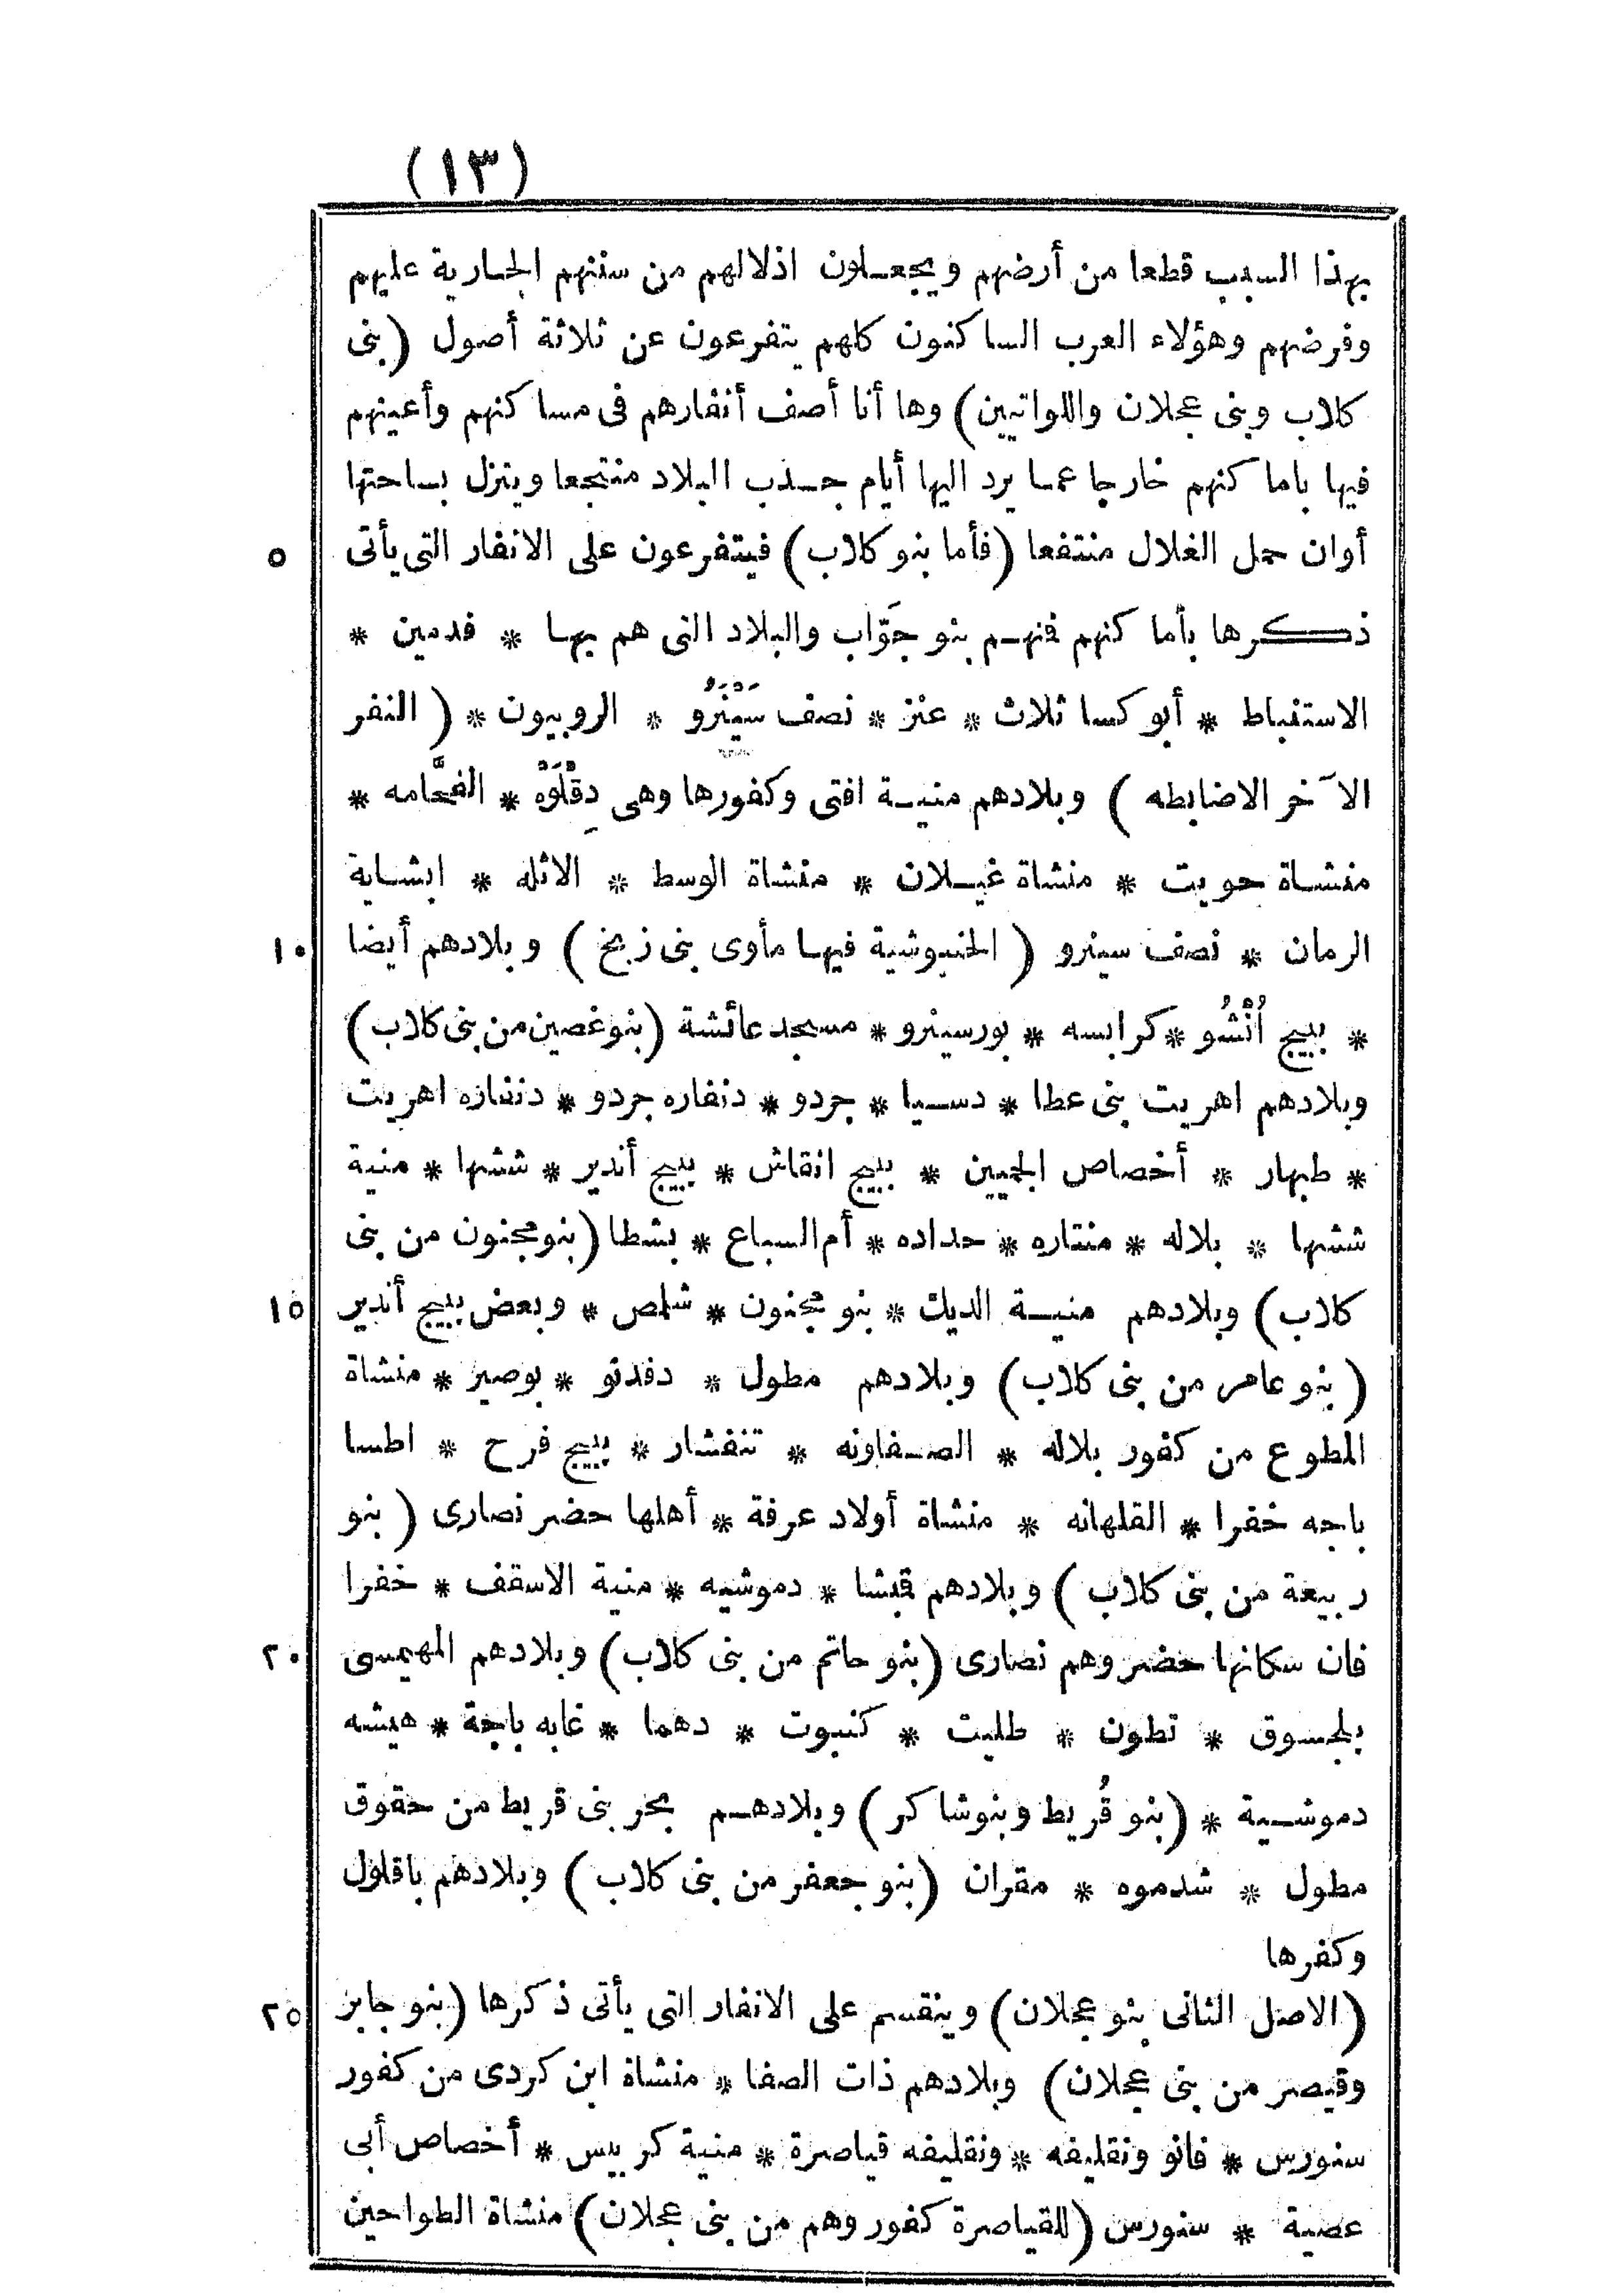 (١٣)
بهذا السبب قطعا من أرضهم ويجعلون اذلالهم من سننهم الجارية عليهم
وفرضهم وهؤلاء العرب الساكنون كلهم يتفرعون عن ثلاثة أصول (بنى
كلاب وبنى عجلان واللواتيين) وها أنا أصف أنفارهم فى مساكنهم وأعينهم
فيها باماكنهم خارجا عما يرد اليها أيام جدب البلاد منتجعا وينزل بساحتها
٥ أوان حمل الغلال منتفعا (فأما بنو كلاب) فيتفرعون على الانفار التى يأتى
ذكرها بأماكنهم فنهم بنو جَوّاب والبلاد التى هم بها * فدمين *
الاستنباط * أبو كسا ثلاث * عنز * نصف سَيْنَرُو * الروبيون * (النفر
الآخر الاضابطه) وبلادهم منية افتى وكفورها وهى دِقْلَوْه * الفحَّامه *
منشاة حويت * منشاة غيلان * منشاة الوسط * الاثله * ابشاية
١٠ الرمان * نصف سينرو (الخنبوشية فيها مأوى بنى زبخ) وبلادهم أيضا
* ببيج اُنْشُو * كرابسه * بورسينرو * مسجد عائشة (بنو غصين من بنى كلاب)
وبلادهم اهريت بنى عطا * دسيا * جردو * دنفاره جردو * دنفاره اهريت
* طبهار * أخصاص الجميين * ببيج انقاش * ببيج أندير * ششها * منية
ششها * بلاله * منتاره * حداده * أم السباع * بشطا (بنو مجنون من بنى
١٥ كلاب) وبلادهم منية الديك * بنو مجنون * شلمص * وبعض ببيج أندير
(بنو عامر من بنى كلاب) وبلادهم مطول * دفدنو * بوصير * منشاة
المطوع من كفور بلاله * الصفاونه * تنفشار * ببيج فرح * اطسا
باجه خفرا * القلهانه * منشاة أولاد عرفة * أهلها حضر نصارى (بنو
ربيعة من بنى كلاب) وبلادهم قبشا * دموشيه * منية الاسقف * خفرا
٢٠ فان سكانها حضر وهم نصارى (بنو حاتم من بنى كلاب) وبلادهم المهيمسى
بلجسوق * تطون * طليت * كنبوت * دهما * غابه باجة * هيشه
دموشية * (بنو قُريط وبنو شاكر) وبلادهم بحر بنى قريط من حقوق
مطول * شدموه * مقران (بنو جعفر من بنى كلاب) وبلادهم باقلول
وكفرها
٢٥ (الاصل الثانى بنو عجلان) وينقسم على الانفار التى يأتى ذكرها (بنو جابر
وقيصر من بنى عجلان) وبلادهم ذات الصفا * منشاة ابن كردى من كفور
سنورس * فانو ونقليفه * ونقليفه قياصرة * منية كربيس * أخصاص أبى
عصية * سنورس (للقياصرة كفور وهم من بنى عجلان) منشاة الطواحين